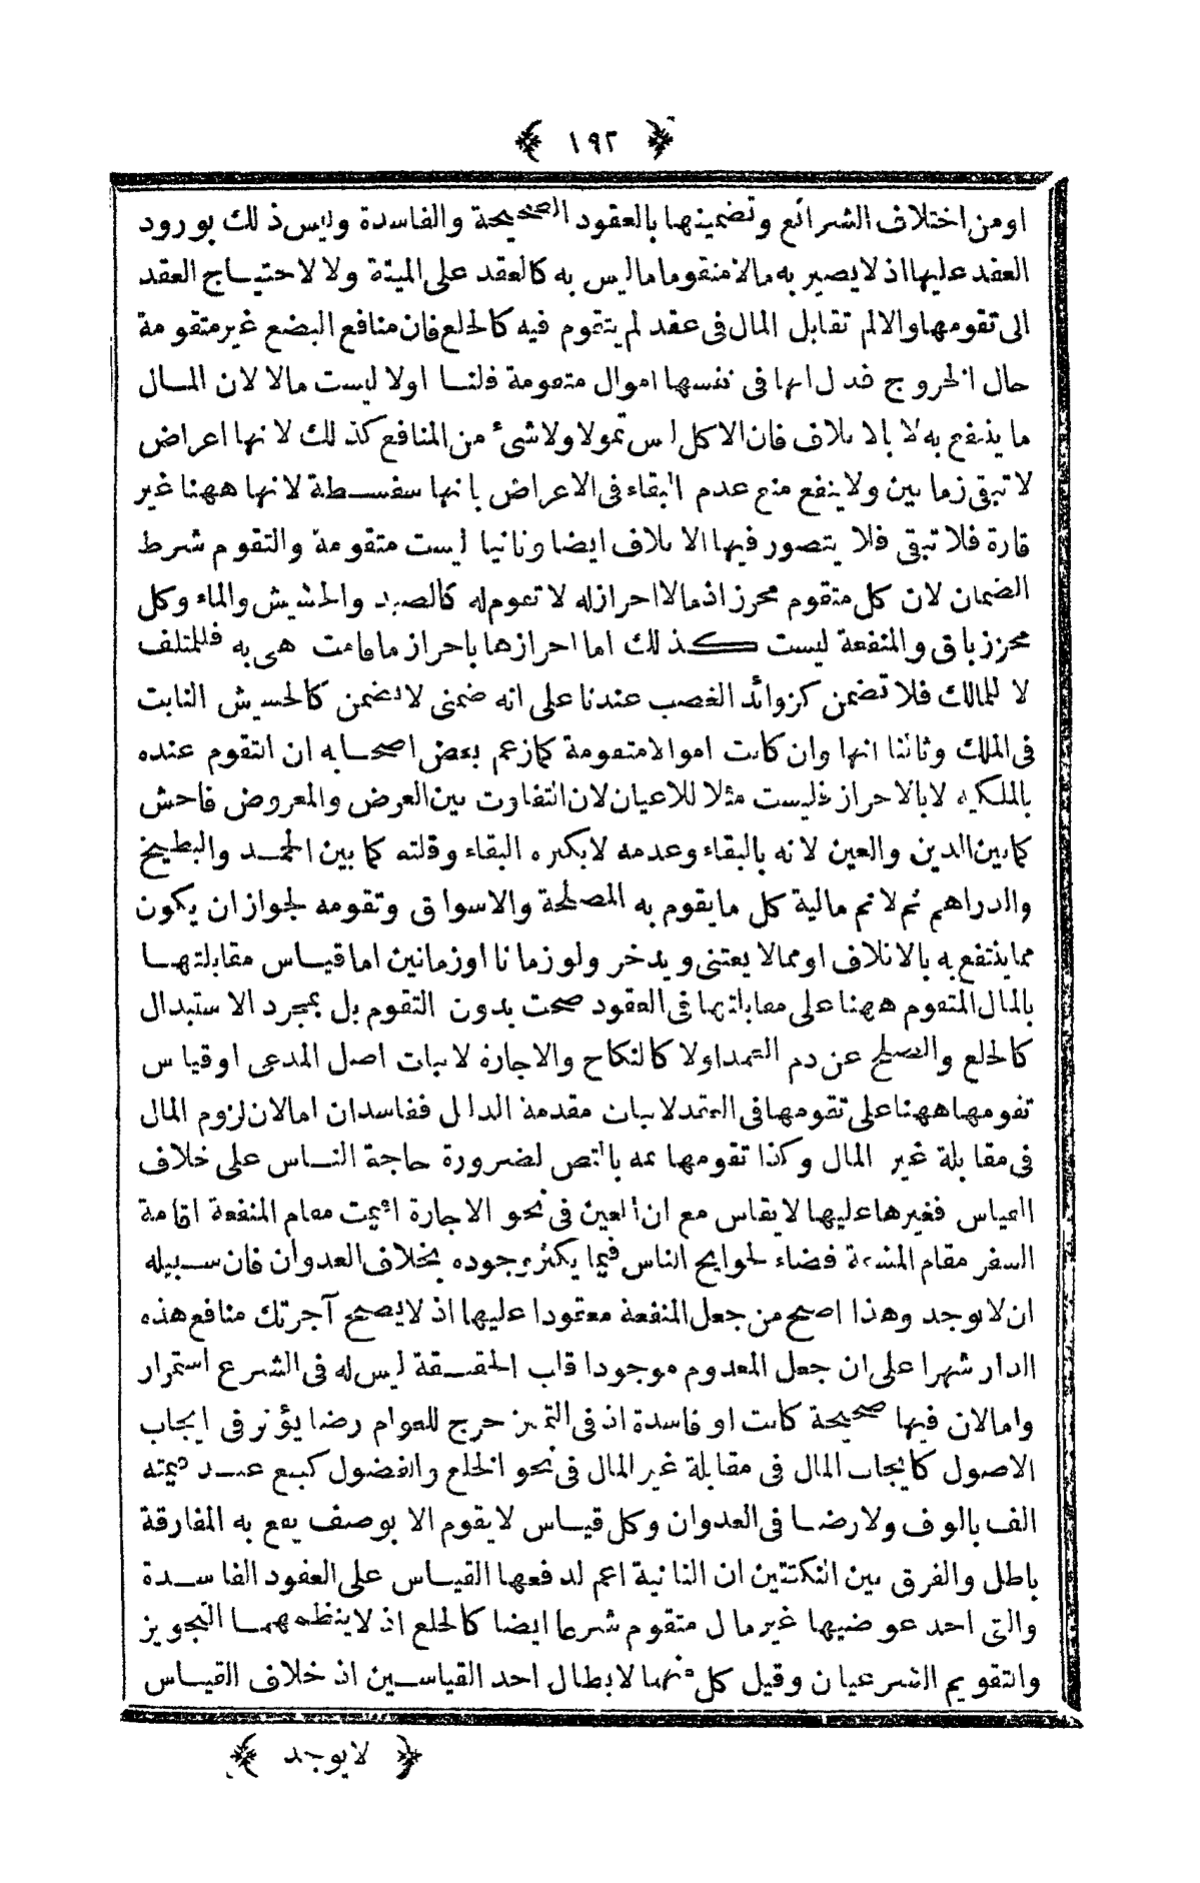 ﴿ ١٩٢ ﴾
او من اختلاف الشرائع وتضمينها بالعقود الصحيحة والفاسدة وليس ذلك بورود
العقد عليها اذ لا يصير به مالا متقوما ما ليس به كالعقد على الميتة ولا لاحتياج العقد
الى تقومها والا لم تقابل المال فى عقد لم يتقوم فيه كالخلع فان منافع البضع غير متقومة
حال الخروج فدل انها فى نفسها اموال متقومة قلنا اولا ليست مالا لان المال
ما ينتفع به لا بالاتلاف فان الاكل ليس تمولا ولا شئ من المنافع كذلك لانها اعراض
لا تبقى زمانين ولا ينفع منع عدم البقاء فى الاعراض بانها سفسطة لانها ههنا غير
قارة فلا تبقى فلا يتصور فيها الاتلاف ايضا وثانيا ليست متقومة والتقوم شرط
الضمان لان كل متقوم محرز اذ مالا احراز له لا تقوم له كالصيد والحشيش والماء وكل
محرز باق والمنفعة ليست كذلك اما احرازها باحراز ما قامت هى به فللمتلف
لا للمالك فلا تضمن كزوائد الغصب عندنا على انه ضمنى لا يضمن كالحشيش النابت
فى الملك وثالثا انها وان كانت اموالا متقومة كما زعم بعض اصحابه ان التقوم عنده
بالملكية لا بالاحراز فليست مثلا للاعيان لان التفاوت بين العرض والمعروض فاحش
كما بين الدين والعين لانه بالبقاء وعدمه لا بكثرة البقاء وقلته كما بين الجمد والبطيخ
والدراهم ثم لا نم مالية كل ما يقوم به المصلحة والاسواق وتقومه لجواز ان يكون
مما ينتفع به بالاتلاف او مما لا يعتنى ويدخر ولو زمانا او زمانين اما قياس مقابلتها
بالمال المتقوم ههنا على مقابلتها فى العقود صحت بدون التقوم بل بمجرد الاستبدال
كالخلع والصلح عن دم العمد اولا كالنكاح والاجارة لاثبات اصل المدعى او قياس
تقومها ههنا على تقومها فى العقد لاثبات مقدمة الدليل ففاسدان اما لان لزوم المال
فى مقابلة غير المال وكذا تقومها ثمه بالنص لضرورة حاجة الناس على خلاف
القياس فغيرها عليها لا يقاس مع ان العين فى نحو الاجارة اقيمت مقام المنفعة اقامة
السفر مقام المشقة قضاء لحوايج الناس فيما يكثر وجوده بخلاف العدوان فان سبيله
ان لا يوجد وهذا اصح من جعل المنفعة معقودا عليها اذ لا يصح آجرتك منافع هذه
الدار شهرا على ان جعل المعدوم موجودا قلب الحقيقة ليس له فى الشرع استمرار
واما لان فيها صحيحة كانت او فاسدة اذ فى التميز حرج للعوام رضا يؤثر فى ايجاب
الاصول كايجاب المال فى مقابلة غير المال فى نحو الخلع والفضول كبيع عبد قيمته
الف بالوف ولا رضا فى العدوان وكل قياس لا يقوم الا بوصف يقع به المفارقة
باطل والفرق بين النكتتين ان الثانية اعم لدفعها القياس على العقود الفاسدة
والتى احد عوضيها غير مال متقوم شرعا ايضا كالخلع اذ لا ينظمهما التجويز
والتقويم الشرعيان وقيل كل منهما لابطال احد القياسين اذ خلاف القياس
﴿ لا يوجد ﴾